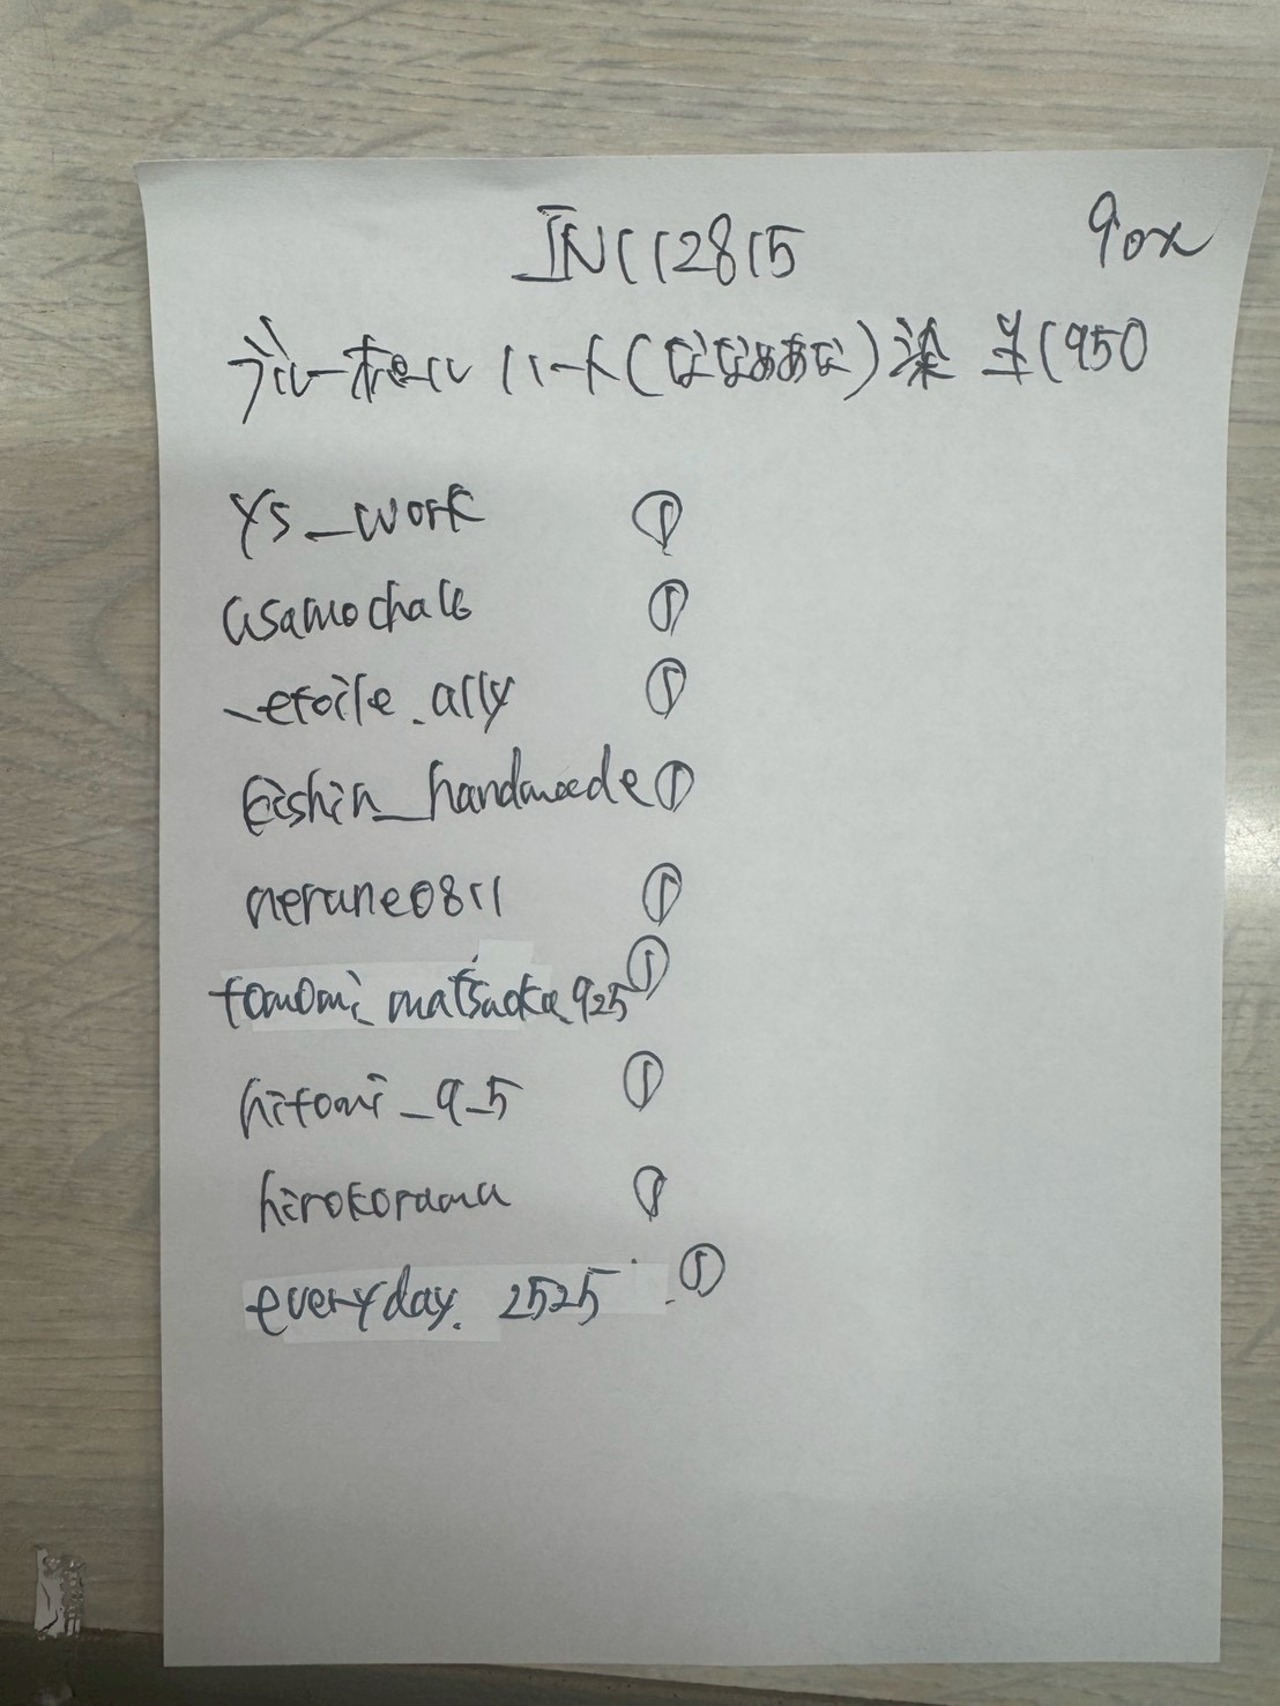 JN112815 90x
ブルーホール ハート(ななめあな)染 羊1950
ys_work ①
asamochako ①
_etoile.ally ①
kishin_handmade ①
nerune0811 ①
tomomi_matsuoka_925 ①
hitomi_9_5 ①
hirokorama ①
everyday.2525 ①